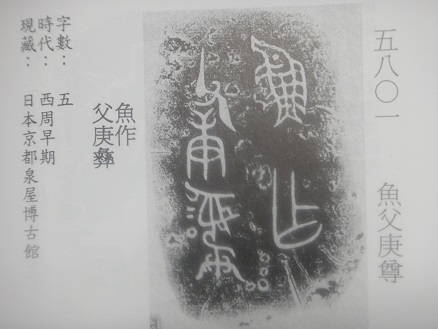 五八〇一　魚父庚尊
魚乍
父庚彝
魚作
父庚彝
字數：五
時代：西周早期
現藏：日本京都泉屋博古館